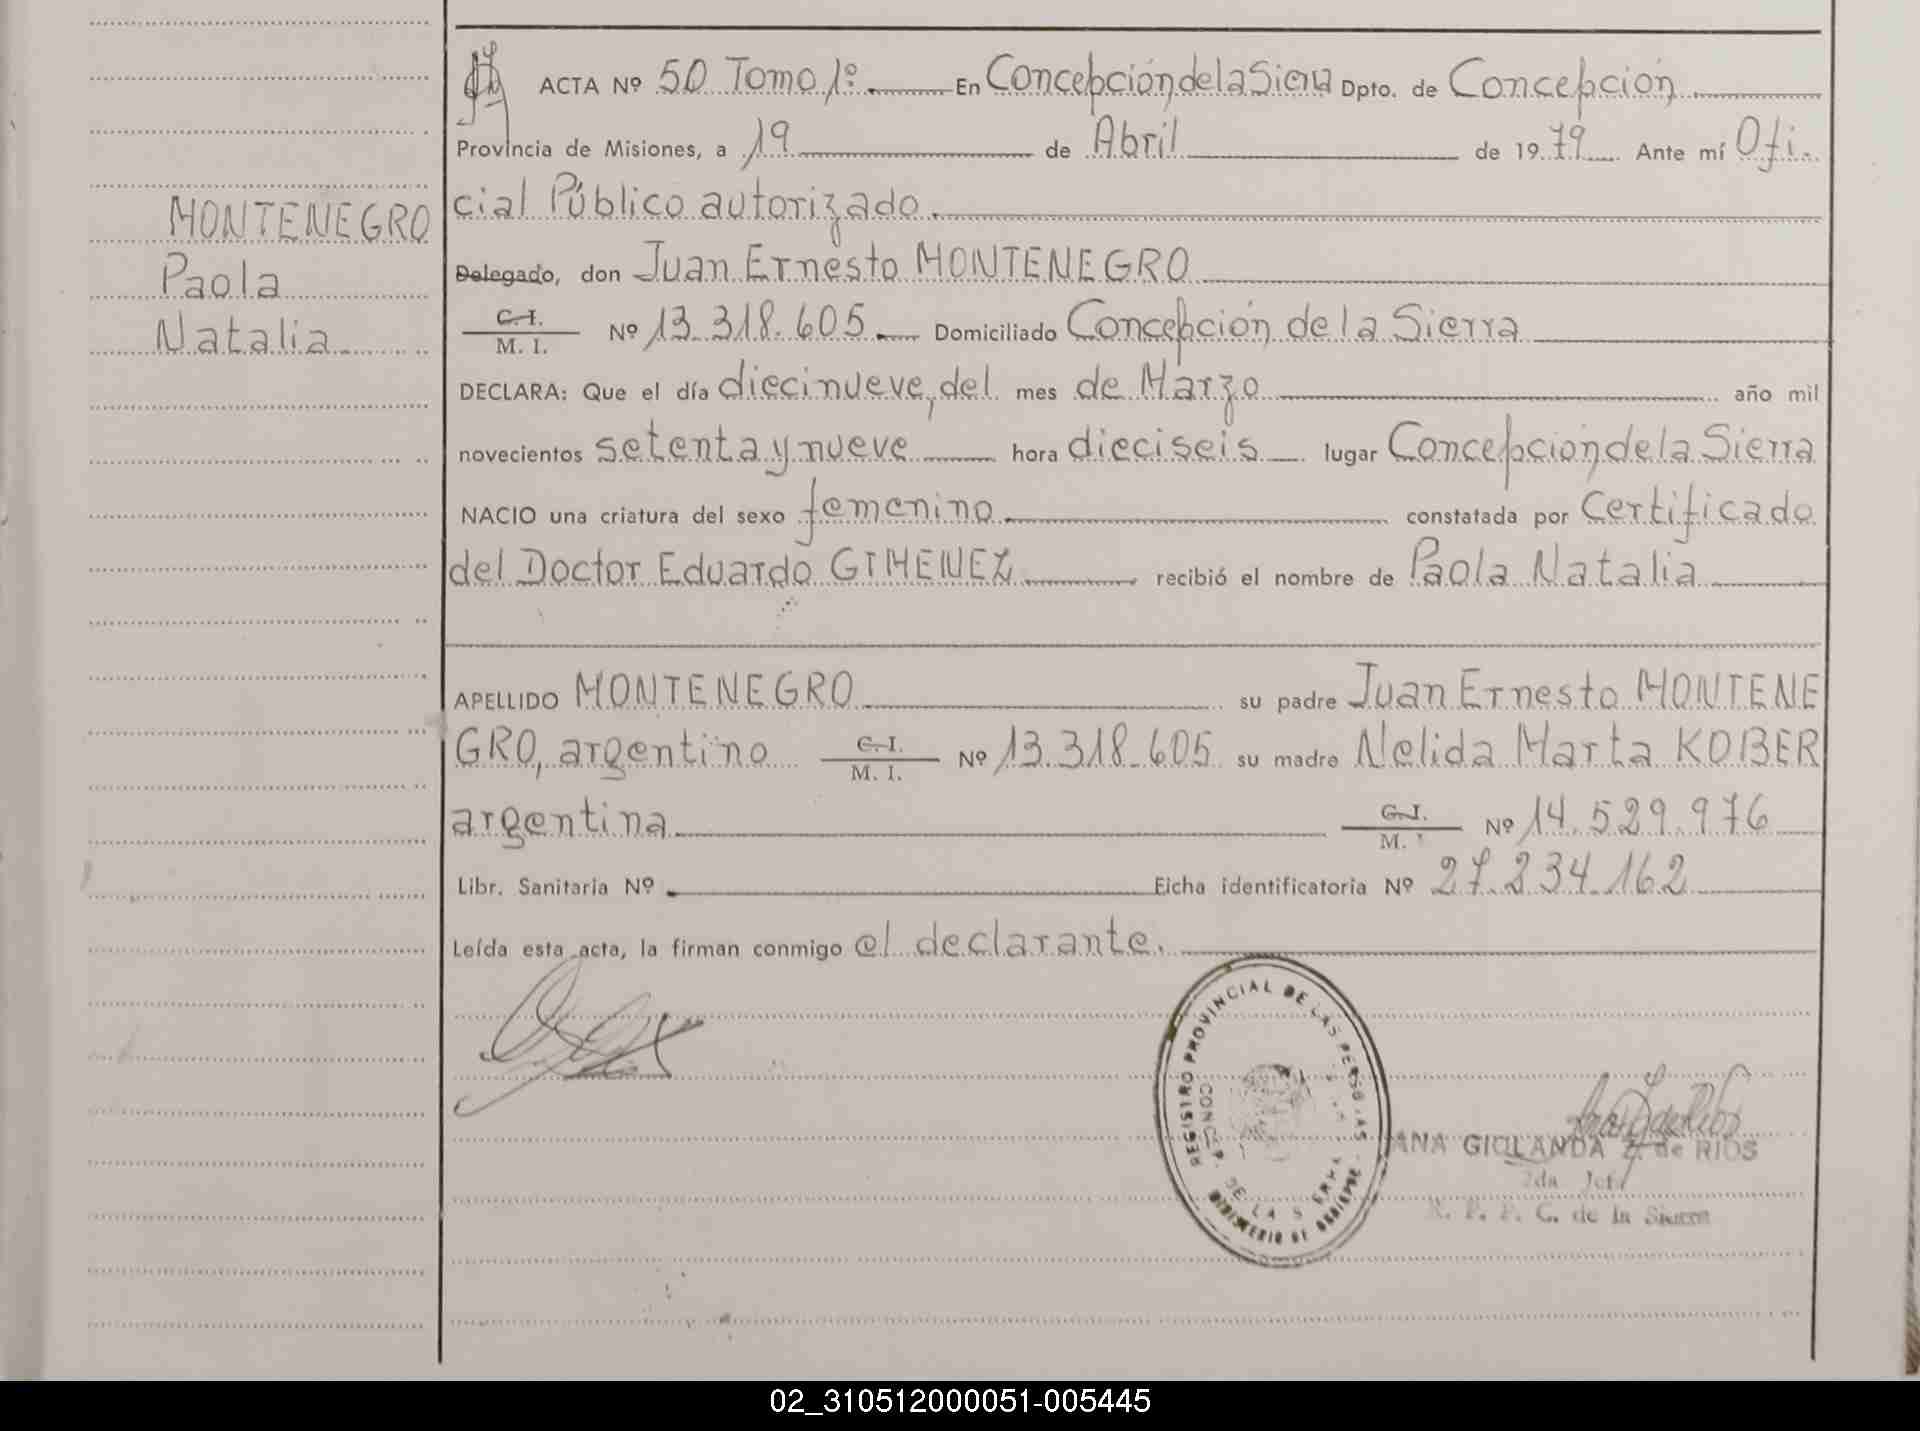 MONTENEGRO
Paola
Natalia
ACTA Nº 50 Tomo 1º. En Concepción de la Sierra Dpto. de Concepción
Provincia de Misiones, a 19 de Abril de 1979 Ante mí Ofi-
cial Público autorizado.
Delegado, don Juan Ernesto MONTENEGRO
C. I.
M. I. Nº 13.318.605. Domiciliado Concepción de la Sierra
DECLARA: Que el día diecinueve, del mes de Marzo año mil
novecientos setenta y nueve hora dieciseis lugar Concepción de la Sierra
NACIO una criatura del sexo femenino constatada por Certificado
del Doctor Eduardo GIMENEZ recibió el nombre de Paola Natalia
APELLIDO MONTENEGRO su padre Juan Ernesto MONTENE
GRO, argentino C. I. M. I. Nº 13.318.605 su madre Nelida Marta KOBER
argentina C. I. M. Nº 14.529.976
Libr. Sanitaria Nº Ficha identificatoria Nº 27.234.162
Leída esta acta, la firman conmigo el declarante.
REGISTRO PROVINCIAL DE LAS PERSONAS
CONCEP. DE LA SIERRA
MINISTERIO DE GOBIERNO
ANA GIOLANDA Z. de RIOS
2da Jefe
R. P. P. C. de la Sierra
02_310512000051-005445